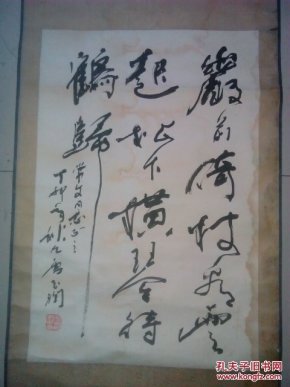 巖前倚杖看雲
起松下橫琴待
鶴歸
同志正之
丁卯
孔夫子旧书网